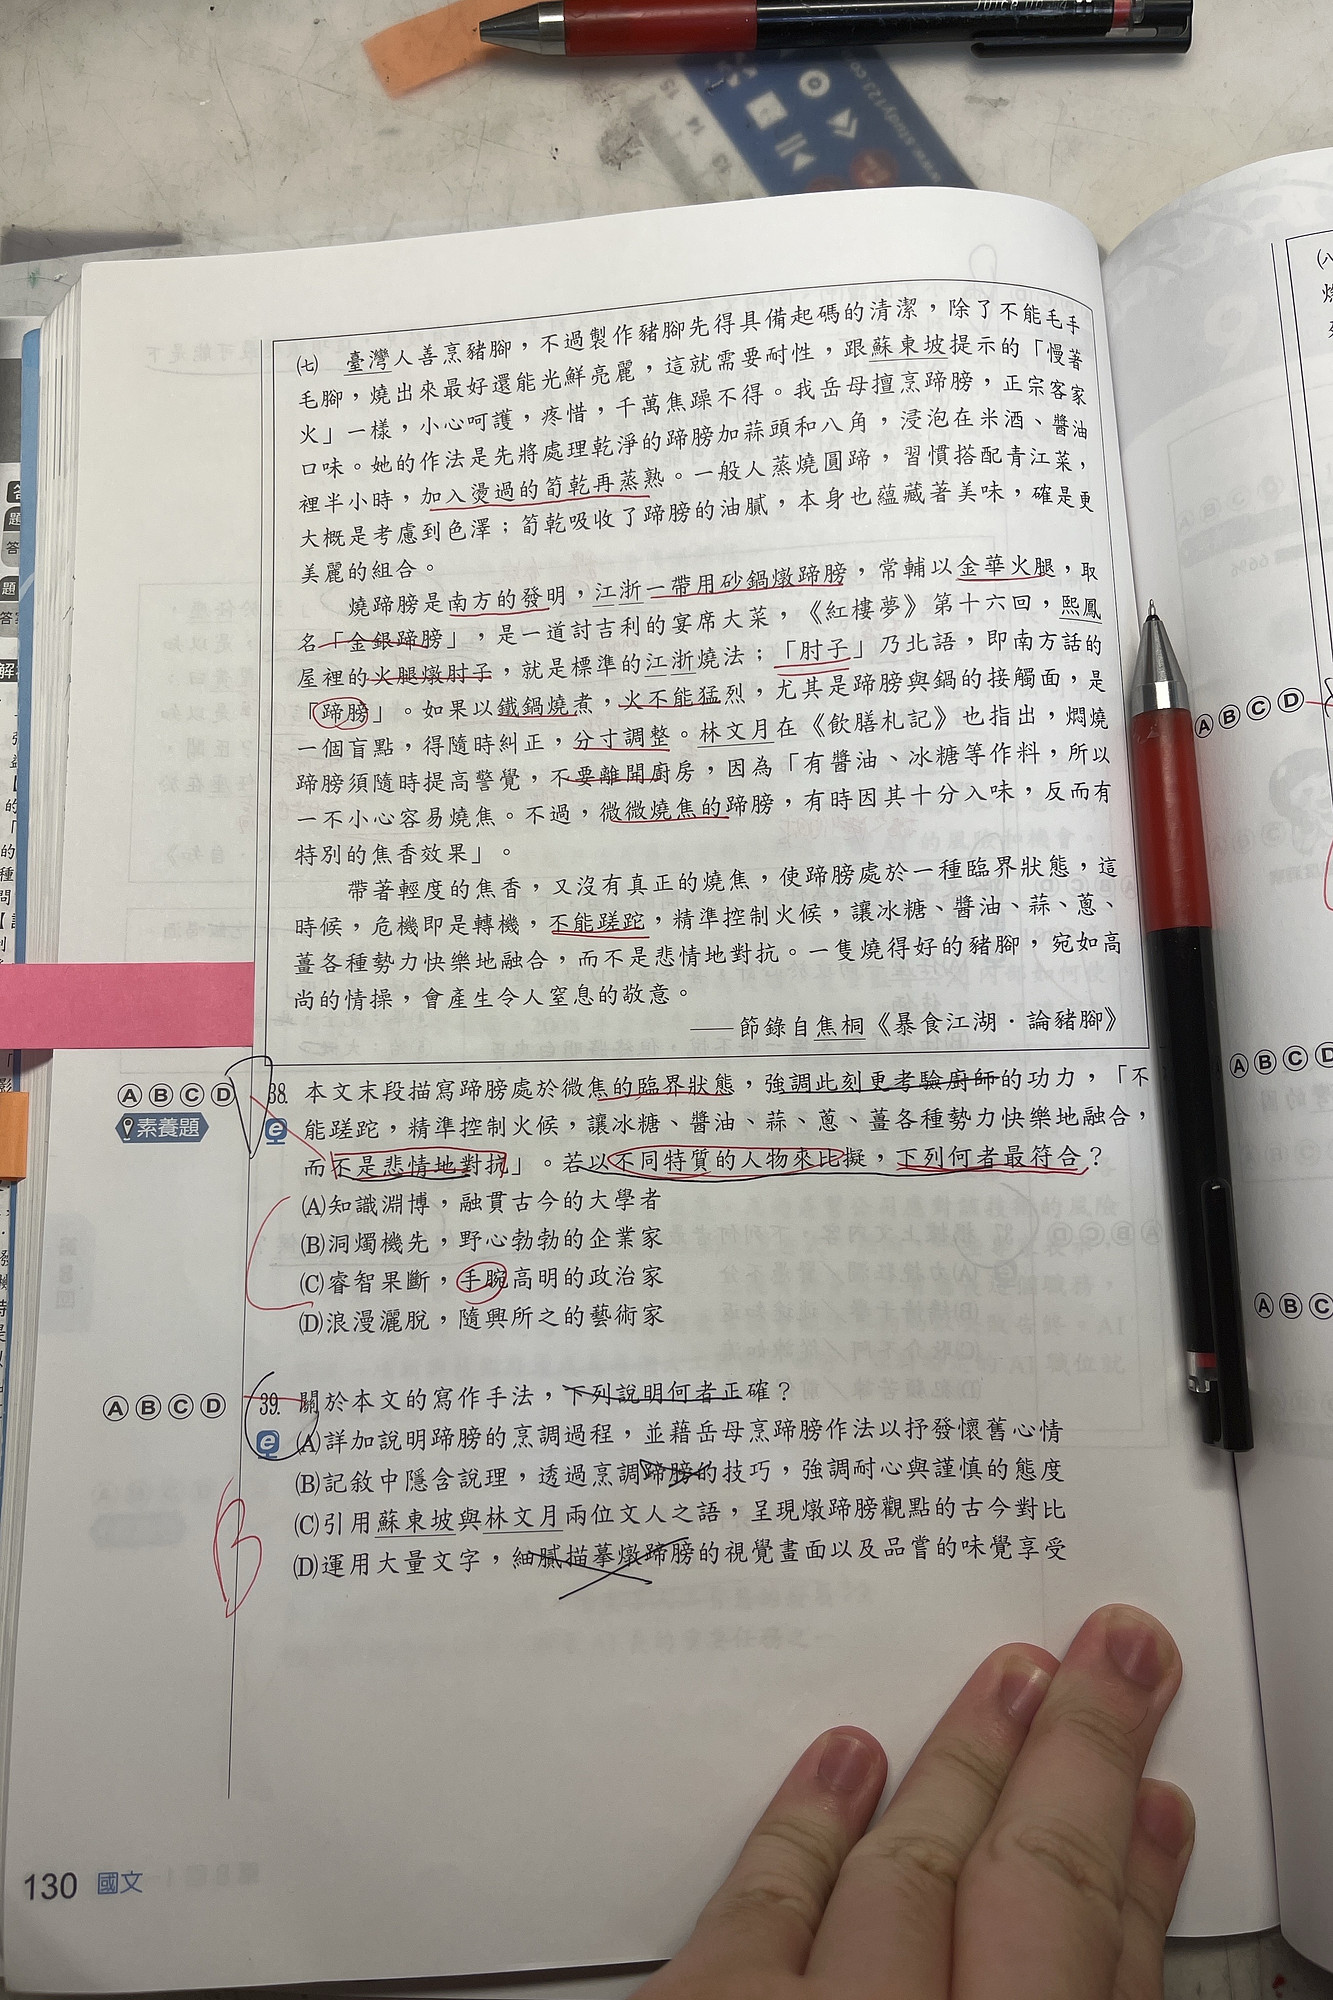 JUICE UP 4
www.study123.co
15
14
(七) 臺灣人善烹豬腳，不過製作豬腳先得具備起碼的清潔，除了不能毛手
毛腳，燒出來最好還能光鮮亮麗，這就需要耐性，跟蘇東坡提示的「慢著
火」一樣，小心呵護，疼惜，千萬焦躁不得。我岳母擅烹蹄膀，正宗客家
口味。她的作法是先將處理乾淨的蹄膀加蒜頭和八角，浸泡在米酒、醬油
裡半小時，加入燙過的筍乾再蒸熟。一般人蒸燒圓蹄，習慣搭配青江菜，
大概是考慮到色澤；筍乾吸收了蹄膀的油膩，本身也蘊藏著美味，確是更
美麗的組合。
燒蹄膀是南方的發明，江浙一帶用砂鍋燉蹄膀，常輔以金華火腿，取
名「金銀蹄膀」，是一道討吉利的宴席大菜，《紅樓夢》第十六回，熙鳳
屋裡的火腿燉肘子，就是標準的江浙燒法；「肘子」乃北語，即南方話的
「蹄膀」。如果以鐵鍋燒煮，火不能猛烈，尤其是蹄膀與鍋的接觸面，是
一個盲點，得隨時糾正，分寸調整。林文月在《飲膳札記》也指出，燜燒
蹄膀須隨時提高警覺，不要離開廚房，因為「有醬油、冰糖等作料，所以
一不小心容易燒焦。不過，微微燒焦的蹄膀，有時因其十分入味，反而有
特別的焦香效果」。
帶著輕度的焦香，又沒有真正的燒焦，使蹄膀處於一種臨界狀態，這
時候，危機即是轉機，不能蹉跎，精準控制火候，讓冰糖、醬油、蒜、蔥、
薑各種勢力快樂地融合，而不是悲情地對抗。一隻燒得好的豬腳，宛如高
尚的情操，會產生令人窒息的敬意。
——節錄自焦桐《暴食江湖．論豬腳》
ⒶⒷⒸⒹ 38. 本文末段描寫蹄膀處於微焦的臨界狀態，強調此刻更考驗廚師的功力，「不
素養題 e 能蹉跎，精準控制火候，讓冰糖、醬油、蒜、蔥、薑各種勢力快樂地融合，
而不是悲情地對抗」。若以不同特質的人物來比擬，下列何者最符合？
(A)知識淵博，融貫古今的大學者
(B)洞燭機先，野心勃勃的企業家
(C)睿智果斷，手腕高明的政治家
(D)浪漫灑脫，隨興所之的藝術家
ⒶⒷⒸⒹ 39. 關於本文的寫作手法，下列說明何者正確？
e (A)詳加說明蹄膀的烹調過程，並藉岳母烹蹄膀作法以抒發懷舊心情
(B)記敘中隱含說理，透過烹調蹄膀的技巧，強調耐心與謹慎的態度
(C)引用蘇東坡與林文月兩位文人之語，呈現燉蹄膀觀點的古今對比
(D)運用大量文字，細膩描摹燉蹄膀的視覺畫面以及品嘗的味覺享受
B
130 國文
(八)
ⒶⒷⒸⒹ
ⒶⒷⒸⒹ
ⒶⒷⒸ